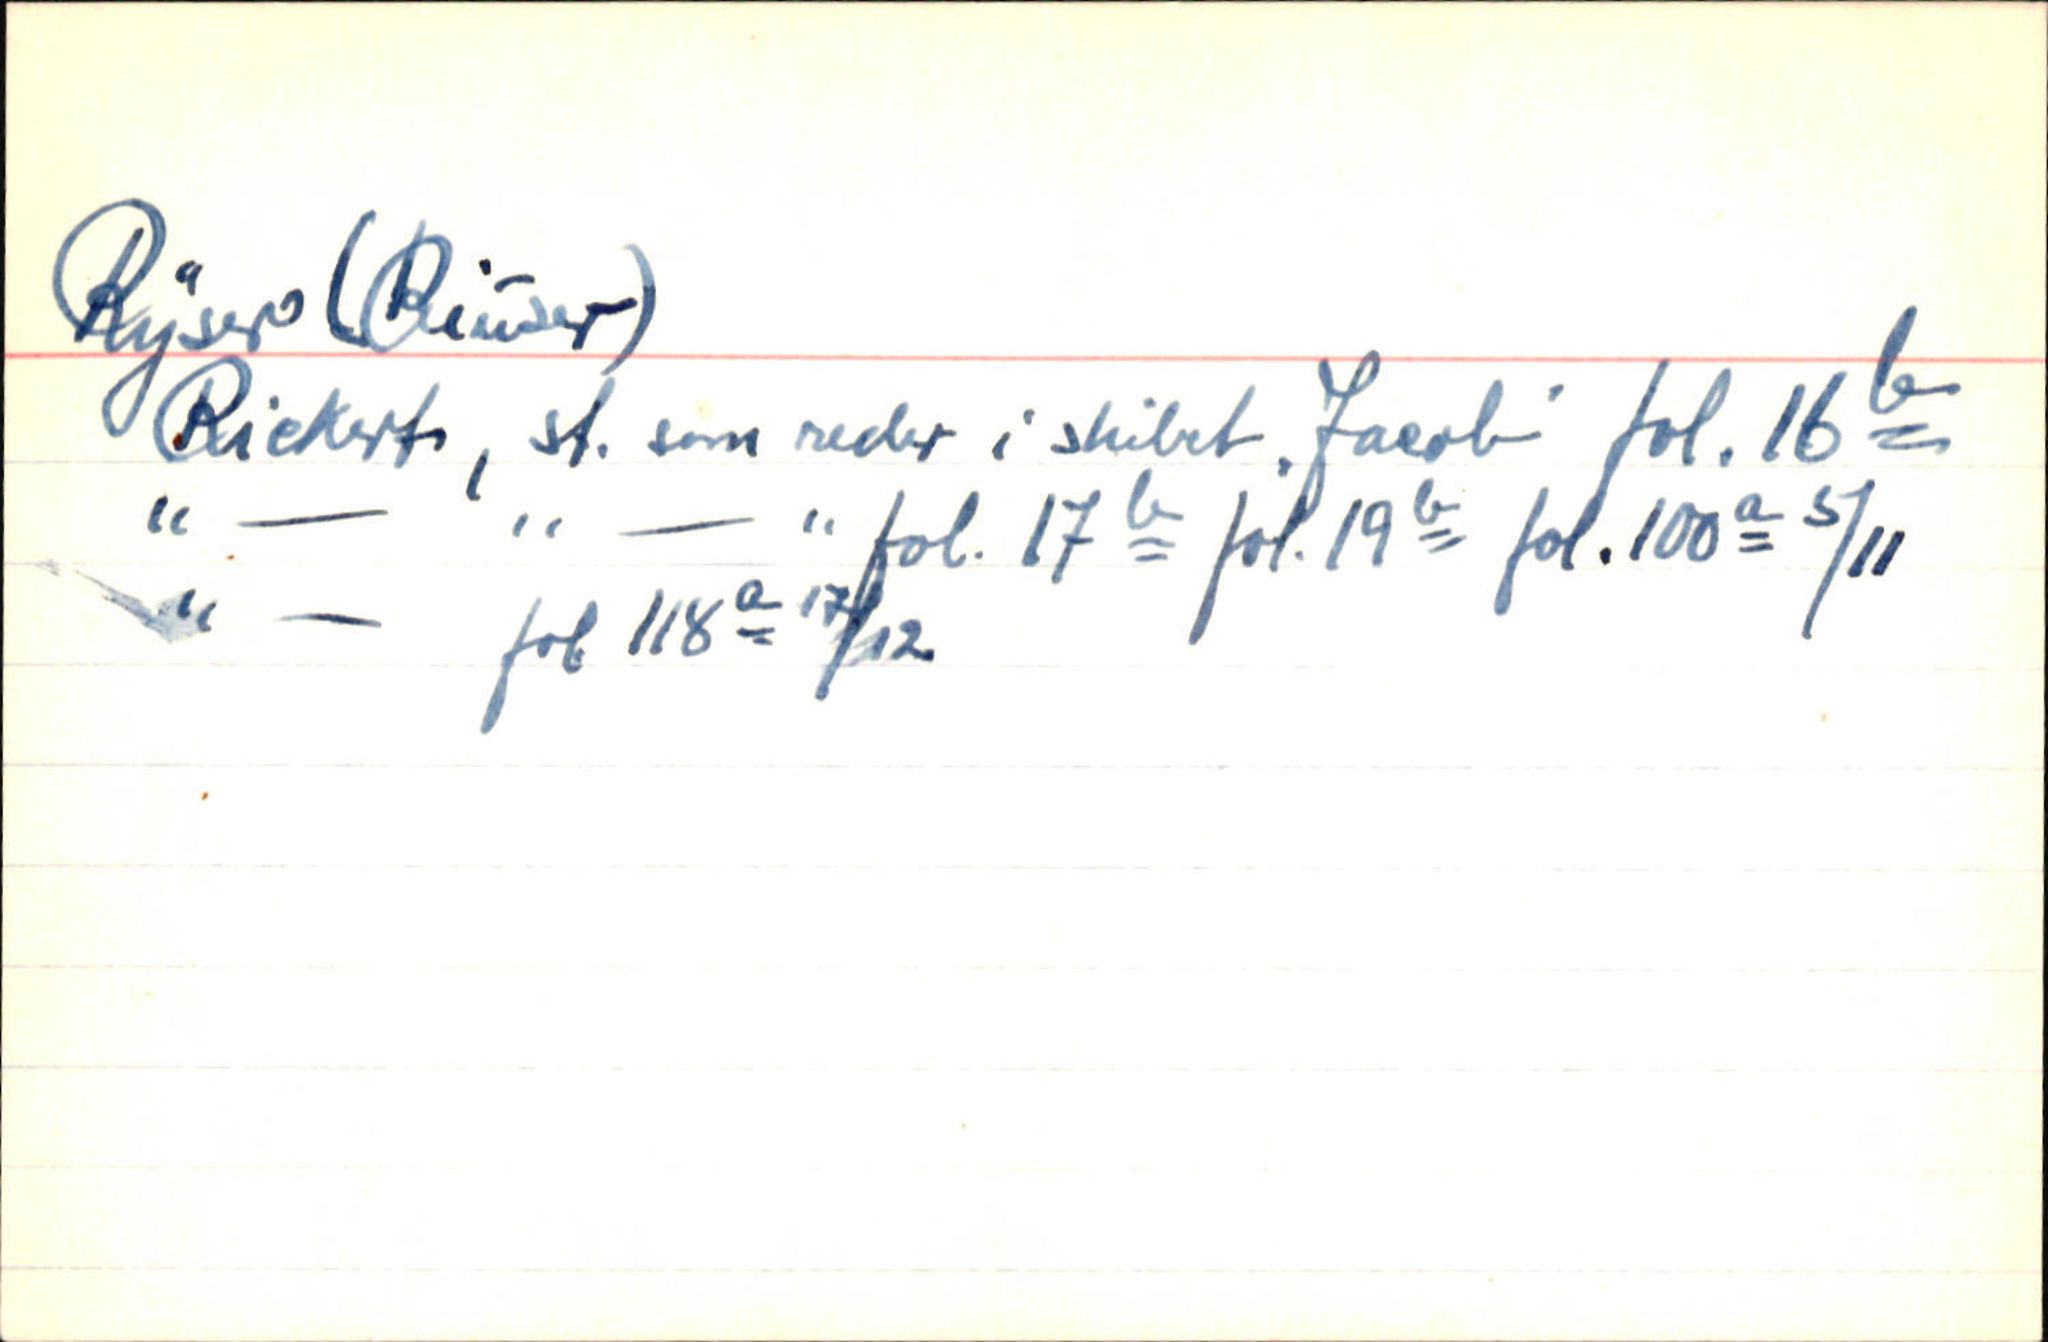 Rÿser (Riüser)
Rickert, st. som reder i skibet „Jacob" fol. 16 b
" — " — " fol. 17 b fol. 19 b fol. 100 a 5/11
" — fol 118 a 17/12